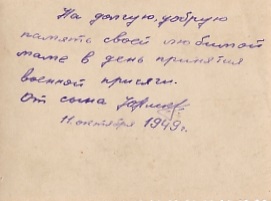 На долгую, добрую
память своей любимой
маме в день принятия
военной присяги.
От сына
11 октября 1949 г.